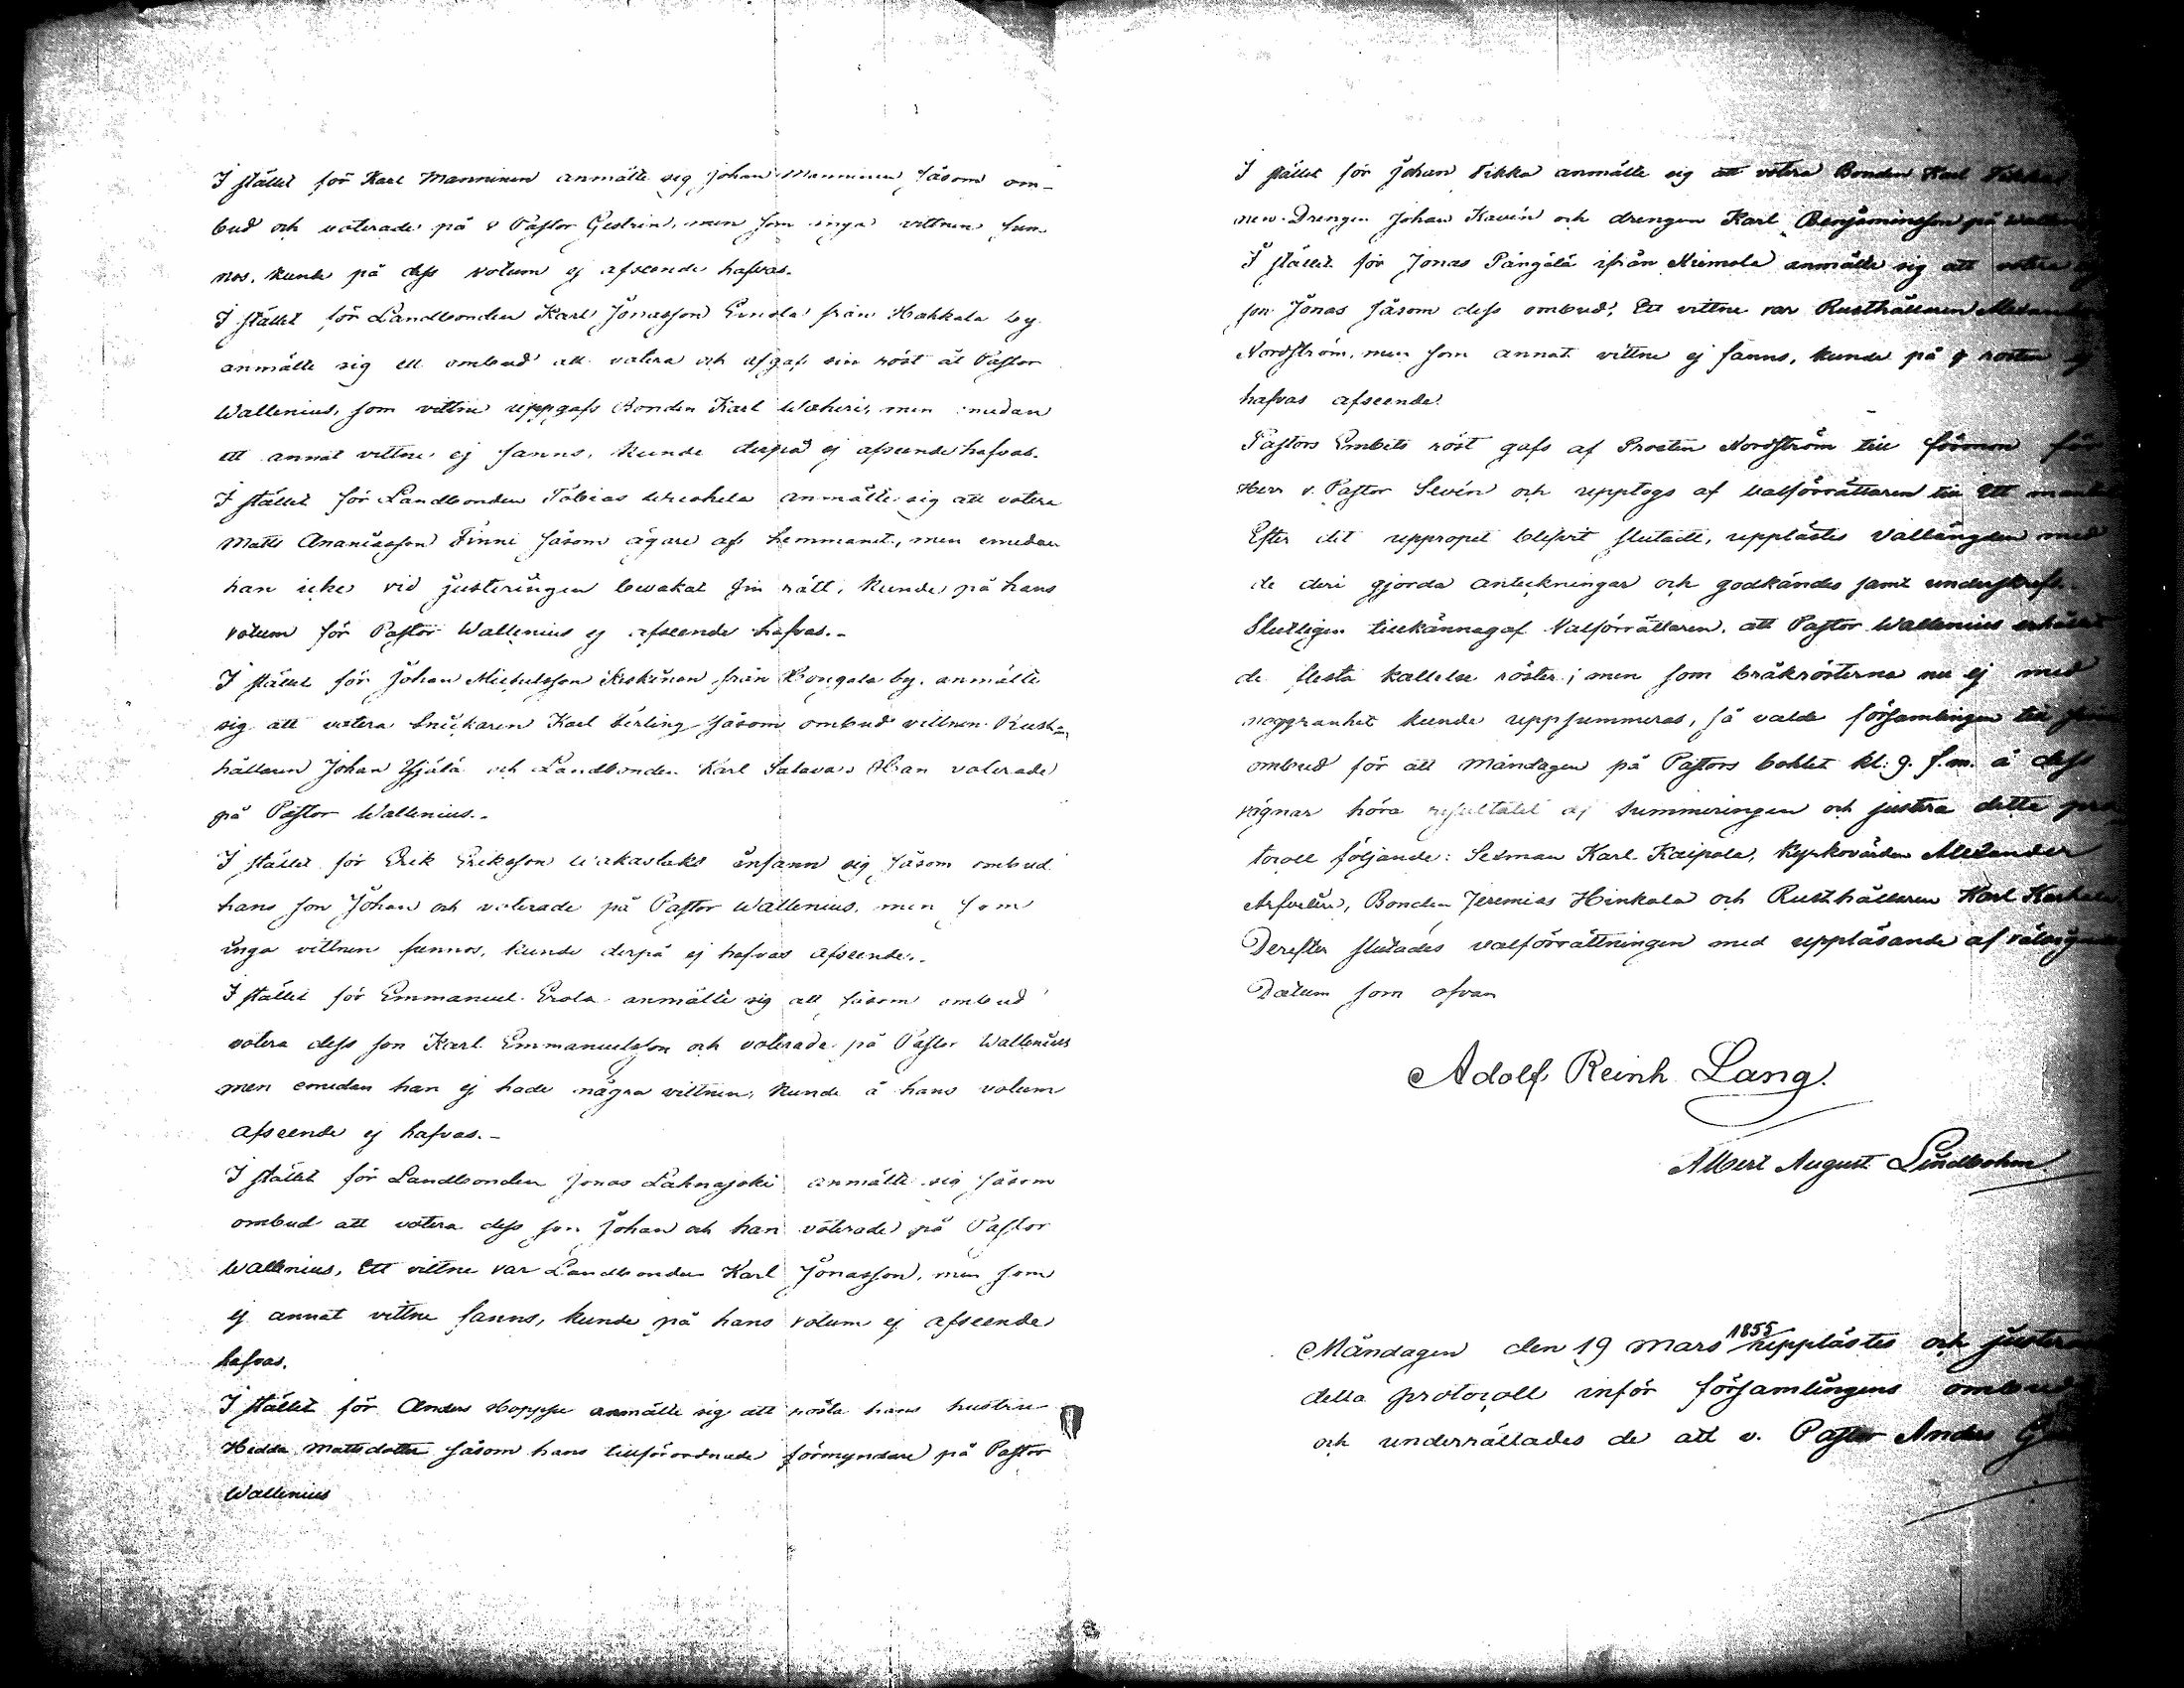 I stället för Karl Manninen anmälte sig Johan Manninen såsom om-
bud och voterade på v Pastor Gestrin, men som inga vittnen fun-
nos, kunde på dess votum ej afseende hafvas.
I stället för Landbonden Karl Jönasson Ernola från Hakkala by
anmälte sig ett ombud att votera och afgaf sin röst åt Pastor
Wallenius, som vittne uppgafs Bonden Karl Waheri, men emedan
ett annat vittne ej fanns, kunde derpå ej afseende hafvas.
I stället för Landbonden Tobias anmälte sig att votera
Matts Ananiasson Finni såsom ägare af hemmanet, men emedan
han icke vid justeringen bevakat sin rätt, kunde på hans
votum för Pastor Wallenius ej afseende hafvas.-
I stället för Johan Michelsson Keskinen från Kongola by, anmälte
sig att votera Snickaren Karl såsom ombud vittnen Rust-
hållaren Johan Yijälä och Landbonden Karl Salava. Han voterade
på Pastor Wallenius.-
I stället för Erik Eriksson infann sig såsom ombud
hans son Johan och voterade på Pastor Wallenius, men som
inga vittnen funnos, kunde derpå ej hafvas afseende.-
I stället för Emmanuel Erola anmälte sig att såsom ombud
votera dess son Karl Emmanuelsson och voterade på Pastor Wallenius
men emedan han ej hade några vittnen, kunde å hans votum
afseende ej hafvas.-
I stället för Landbonden Jonas Lahnajoki anmälte sig såsom
ombud att votera dess son Johan och han voterade på Pastor
Wallenius, Ett vittne var Landbonden Karl Jönasson, men som
ej annat vittne fanns, kunde på hans votum ej afseende
hafvas.
I stället för Anders Hoppu anmälte sig att rösta hans hustru
Hedda Mattsdotter såsom hans tillförordnade förmyndare på Pastor
Wallenius
I stället för Johan Tikka anmälte sig att votera Bonden Karl Tikka
Drengen Johan Kavén och drengen Karl Benjaminsson på
I stället för Jonas Pängälä ifrån Heimola anmälte sig att votera
son Jonas såsom dess ombud; Ett vittne var Rusthållaren
Nordström, men som annat vittne ej fanns, kunde på rösten ej
hafvas afseende.
Pastors Embets röst gafs af Prosten Nordström till förmon för
Herr v. Pastor Sevén och upptogs af valförrättaren till Ett
Efter det uppropet blefvit slutadt, upplästes Vallängden med
de deri gjorda anteckningar och godkändes samt underskrefs.
Slutligen tillkännagaf Valförrättaren, att Pastor Wallenius erhållit
de flesta kallelse röster; men som bråkrösterna nu ej med
noggranhet kunde uppsummeras, så valde församlingen till
ombud för att Måndagen på Pastors bohlet kl: 9. f.m. å dess
vägnar höra resultatet af summeringen och justera detta pro-
tocoll följande: Sexman Karl Kaipola, Kyrkovärden Alexander
Arfvelin, Bonden Jeremias Hinkala och Rusthållaren Karl
Derefter slutades valförrättningen med uppläsande af
Datum som ofvan
Adolf Reinh Lang.
Albert August Lindbohm
Måndagen den 19 Mars 1855 upplästes och
detta protocoll inför församlingens ombud
och underrättades de att v. Pastor Anders